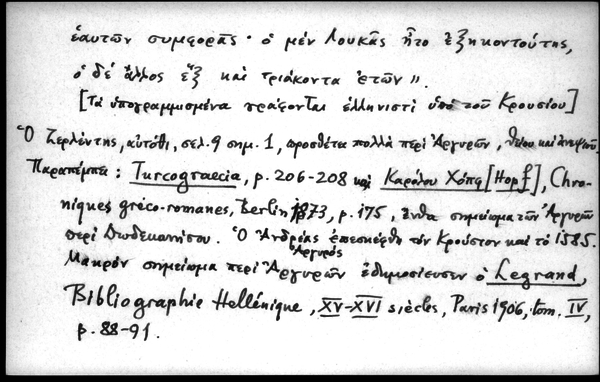 ἑαυτῶν συμφορᾶς· ὁ μέν Λουκᾶς ἦτο ἑξηκοντούτης,
ὁ δέ ἄλλος ἕξ καί τριάκοντα ἐτῶν".
[Τά ὑπογραμμισμένα γράφονται ἑλληνιστί ὑπό τοῦ Κρουσίου]
Ὁ Ζερλέντης, αὐτόθι, σελ. 9 σημ. 1, προσθέτει πολλά περί Ἀργυρῶν, θείου καί ἀνεψιοῦ.
Παραπέμπει: Turcograecia, p. 206-208 καί Καρόλου Χόπφ [Hopf], Chro-
niques gréco-romanes, Berlin, 1873, p. 175, ἔνθα σημείωμα τῶν Ἀργυρῶν
περί Δωδεκανήσου. Ὁ Ἀνδρέας Ἀργυρός ἐπεσκέφθη τόν Κρούσιον καί τό 1585.
Μακρόν σημείωμα περί Ἀργυρῶν ἐδημοσίευσεν ὁ Legrand,
Bibliographie Hellénique, XV-XVI siècles, Paris 1906, tom. IV,
p. 88-91.